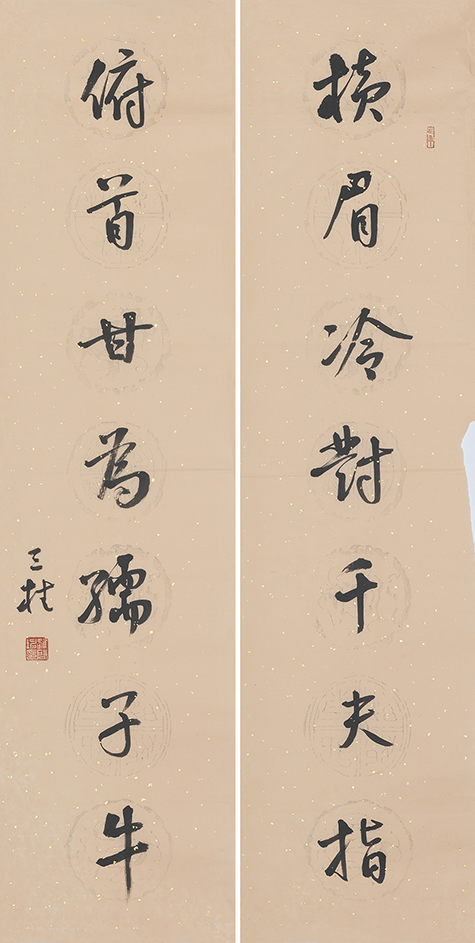 橫眉冷對千夫指
俯首甘為孺子牛
三桂